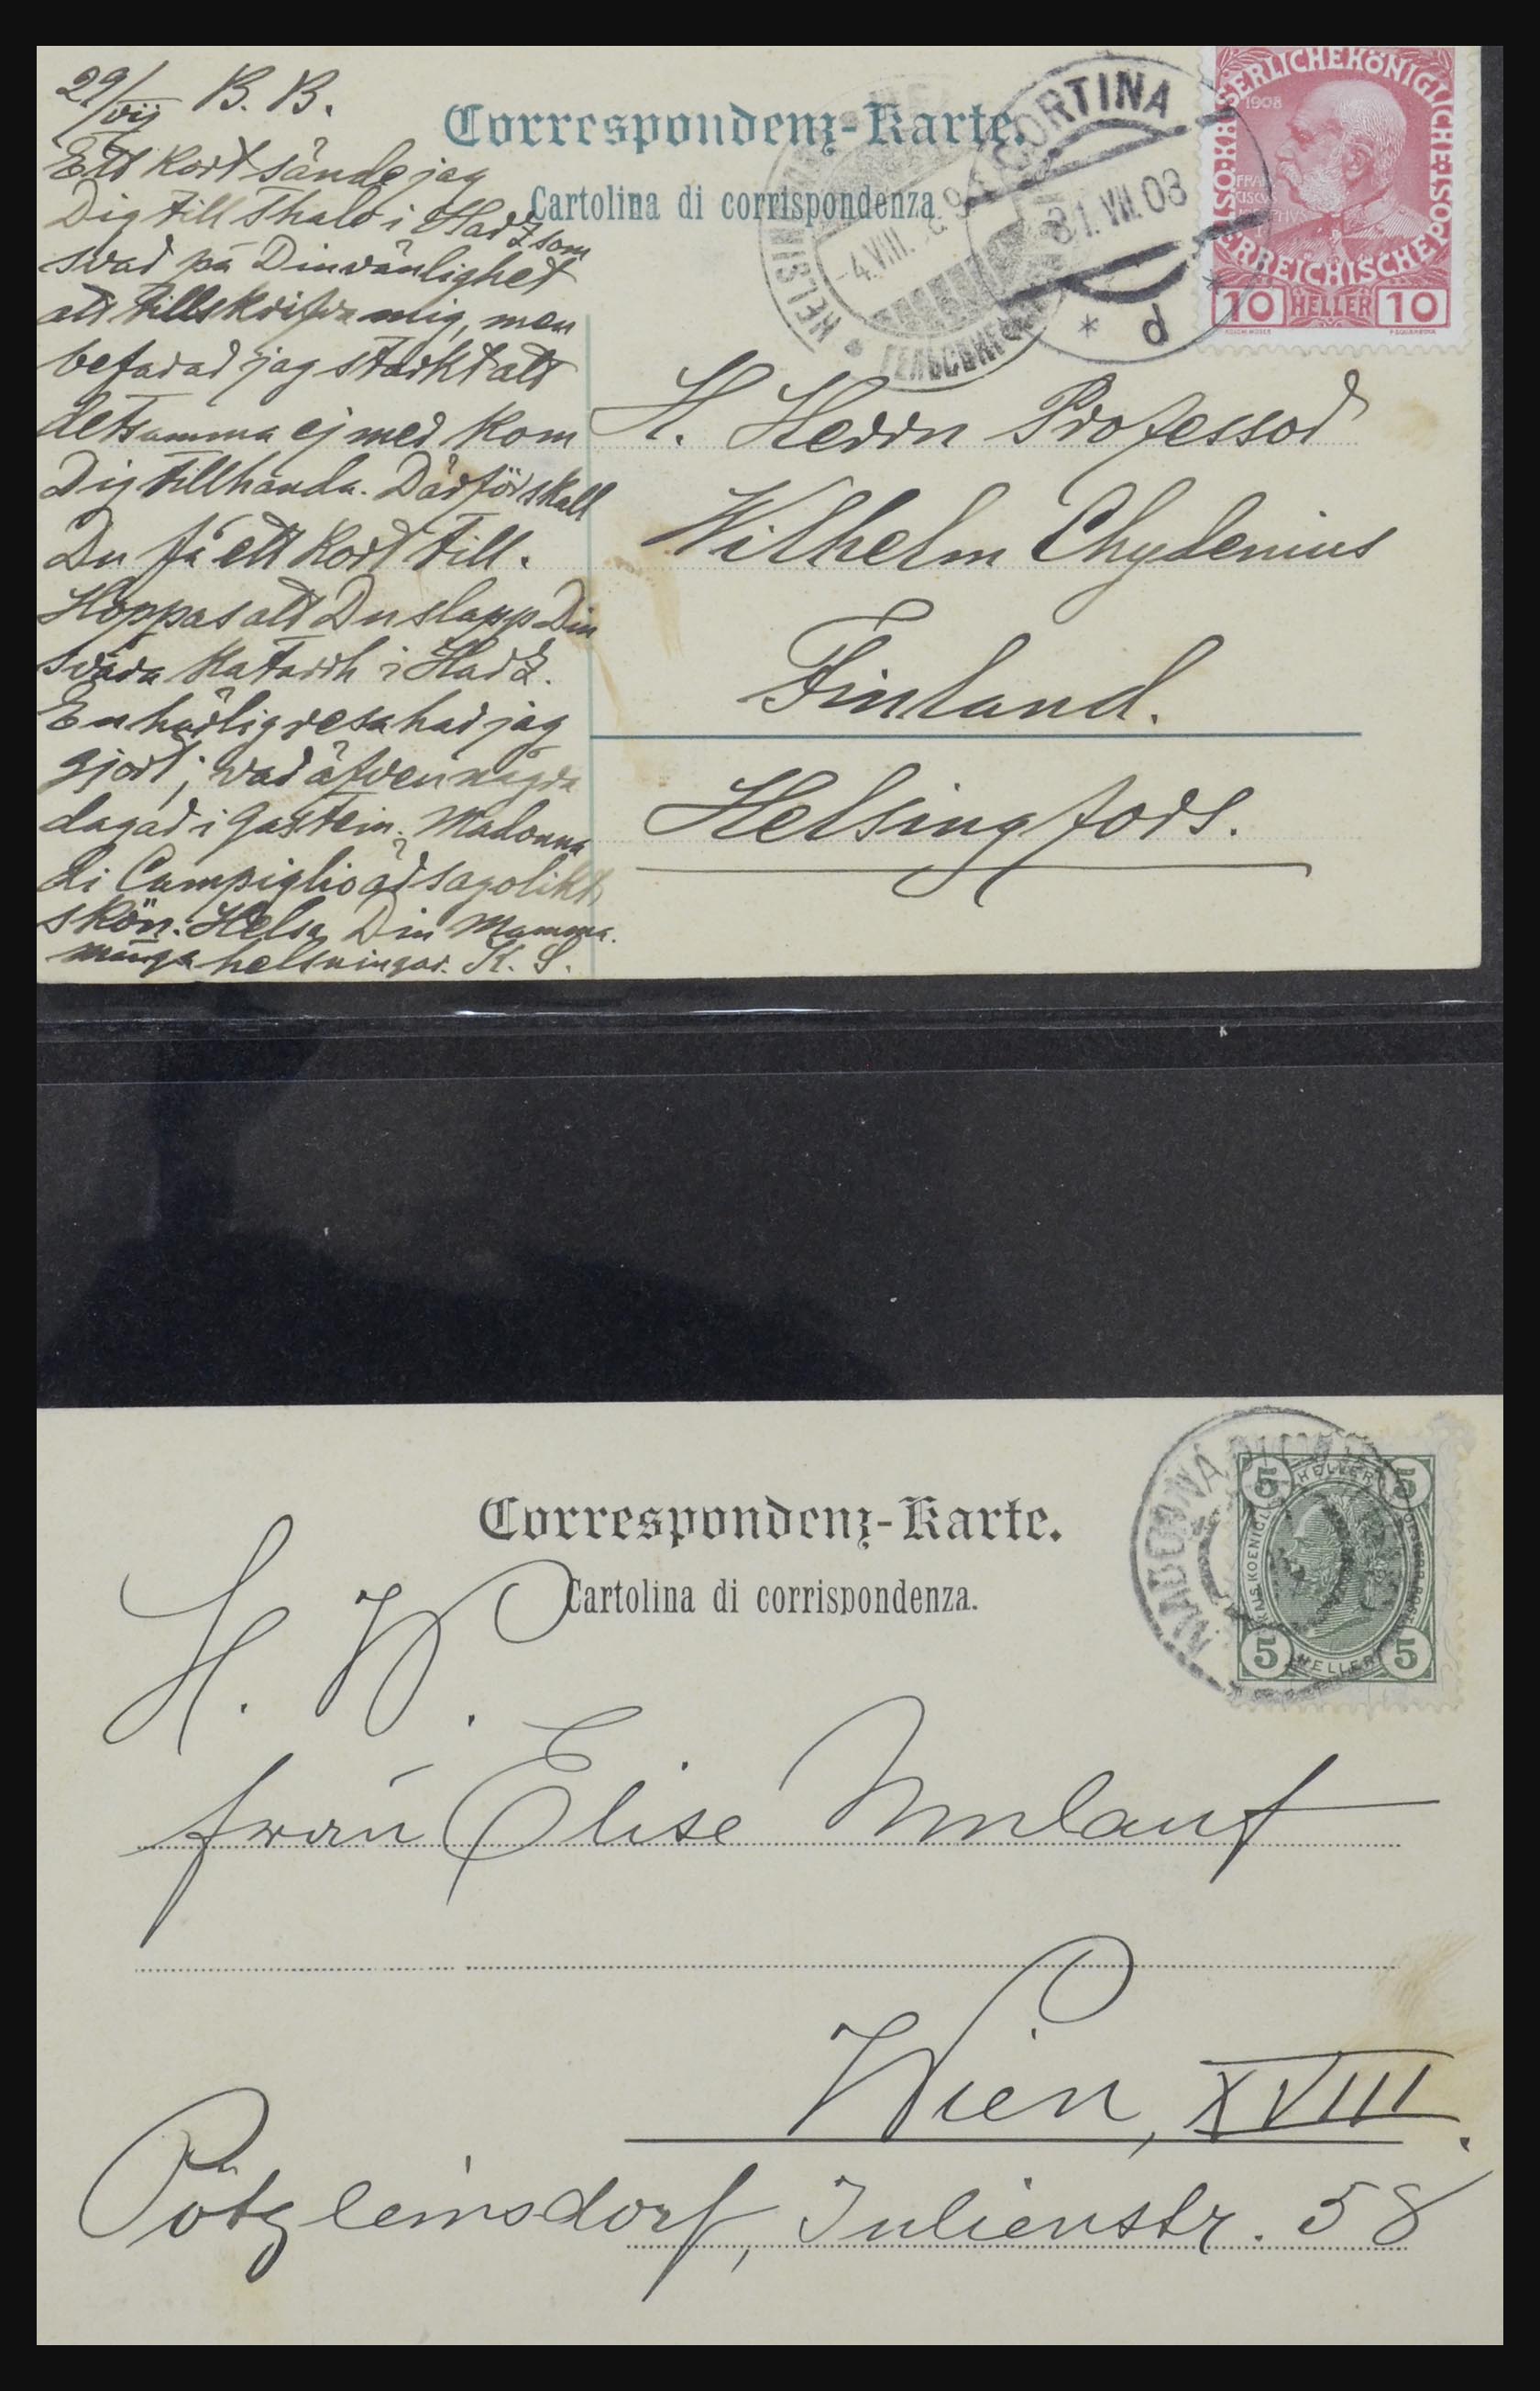 29/vij B. B.
Ett kort sände jag
Dig till Thale i Harz som
svar på Din vänlighet
att tillskrifva mig, men
befarar jag starkt att
detsamma ej mer kom
Dig tillhanda. Därför skall
Du få ett kort till.
Hoppas att Du slapp Din
svåra Katarrh i Harz.
En härlig resa har jag
gjort; var äfven några
dagar i Gastein. Madonna
di Campiglio är sagolikt
skön. Helsa Din Mamma.
många helsningar. K. S.
Correspondenz-Karte.
Cartolina di corrispondenza.
CORTINA
31.VII.08
d
HELSINGFORS
4.VIII.
ГЕЛЬСИНГФ
KAISERLICHE KÖNIGLICHE
ÖSTERREICHISCHE POST
1908
10 HELLER 10
H. Herrn Professor
Wilhelm Chydenius
Finland.
Helsingfors.
Correspondenz-Karte.
Cartolina di corrispondenza.
MADONNA DI
5 HELLER 5
5 HELLER 5
H. W.
Frau Elise Umlauf
Wien, XVIII.
Pötzleinsdorf, Julienstr. 58